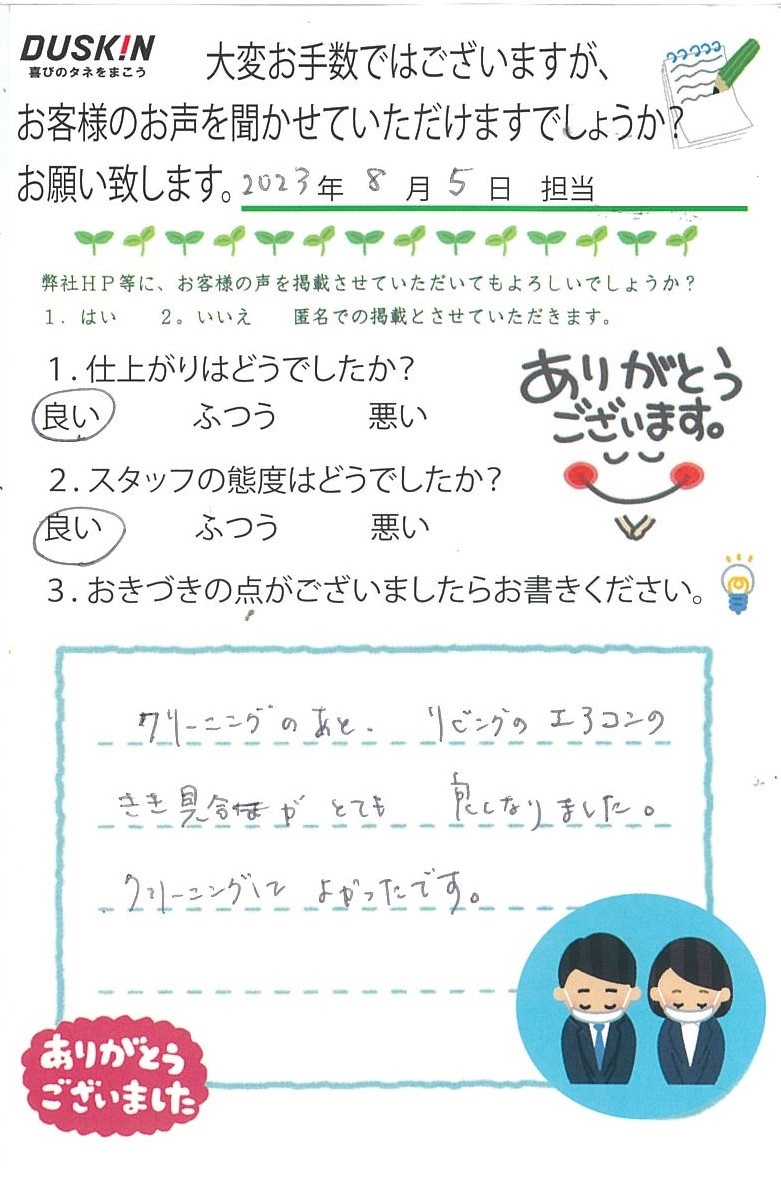 DUSK!N
喜びのタネをまこう
大変お手数ではございますが、
お客様のお声を聞かせていただけますでしょうか？
お願い致します。2023年 8 月 5 日 担当
弊社ＨＰ等に、お客様の声を掲載させていただいてもよろしいでしょうか？
１．はい ２。いいえ 匿名での掲載とさせていただきます。
１．仕上がりはどうでしたか？
良い ふつう 悪い
ありがとう
ございます。
２．スタッフの態度はどうでしたか？
良い ふつう 悪い
３．おきづきの点がございましたらお書きください。
クリーニングのあと、リビングのエアコンの
きき具合が とても 良くなりました。
クリーニングして よかったです。
ありがとう
ございました